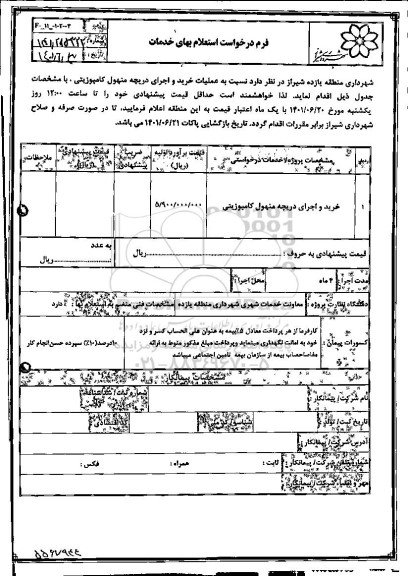 فرم درخواست استعلام بهای خدمات
شهرداری منطقه یازده شیراز در نظر دارد نسبت به عملیات خرید و اجرای دریچه منهول کامپوزیتی ، با مشخصات
جدول ذیل اقدام نماید. لذا خواهشمند است حداقل قیمت پیشنهادی خود را تا ساعت ۱۲:۰۰ روز
یکشنبه مورخ ۱۴۰۱/۰۶/۲۰ با یک ماه اعتبار قیمت به این منطقه اعلام فرمایید، تا در صورت صرفه و صلاح
شهرداری شیراز برابر مقررات اقدام گردد. تاریخ بازگشایی پاکات ۱۴۰۱/۰۶/۲۱ می باشد.
ردیف مشخصات پروژه/خدمات درخواستی قیمت برآورد اولیه (ریال) ضریب پیشنهادی قیمت پیشنهادی ملاحظات
۱ خرید و اجرای دریچه منهول کامپوزیتی ۵/۹۰۰/۰۰۰/۰۰۰
قیمت پیشنهادی به حروف : ریال به عدد ریال
مدت اجرا : ۴ ماه محل اجرا :
دستگاه نظارت پروژه : معاونت خدمات شهری شهرداری منطقه یازده مشخصات فنی منضم به استعلام بها : دارد
کسورات پیمان : کارفرما از هر پرداخت معادل ۵٪ بیمه به عنوان علی الحساب کسر و نزد
خود به امانت نگهداری مینماید و پرداخت مبلغ مذکور منوط به ارائه
مفاصاحساب بیمه از سازمان بیمه تامین اجتماعی میباشد
۱۰درصد(۱۰٪) سپرده حسن انجام کار
مشخصات پیمانکار
نام شرکت/ پیمانکار : شماره ثبت/ شناسنامه :
تاریخ ثبت/ تولد :
آدرس شرکت/ پیمانکار :
شماره تلفن شرکت/ پیمانکار : ثابت : همراه : فکس :
مهر و امضاء شرکت/ پیمانکار :